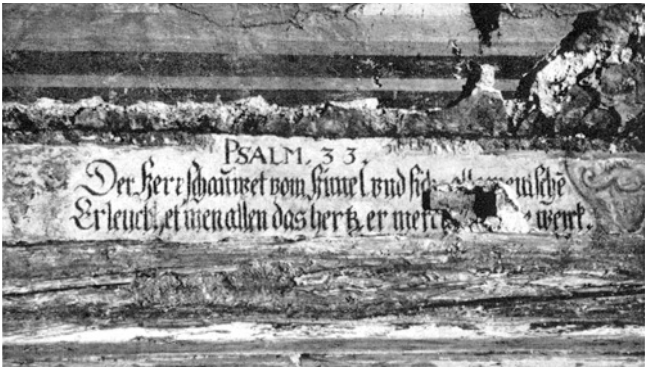 PSALM. 33.
Der Herr schauwet vom himel vnd sicht menschē
Erleucht et inen allen das hertz, er werck.